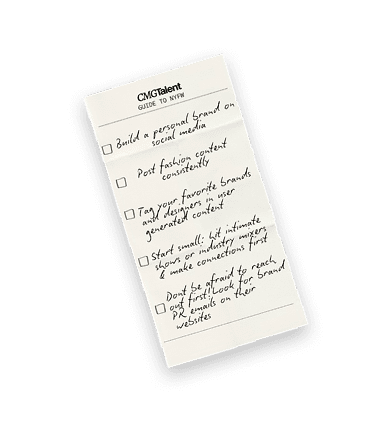 CMGTalent
GUIDE TO NYFW
Build a personal brand on
social media
Post fashion content
consistently
Tag your favorite brands
and designers in user
generated content
Start small: hit intimate
shows or industry mixers
& make connections first
Dont be afraid to reach
out first! Look for brand
PR emails on their
websites